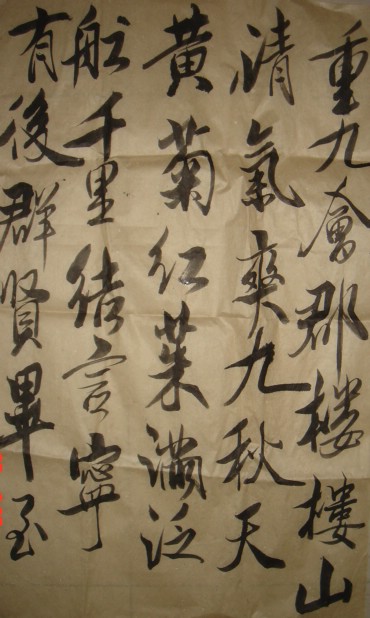 重九會郡樓樓山
清氣爽九秋天
黄菊紅茱滿泛
舡千里結言寧
有後群賢畢至